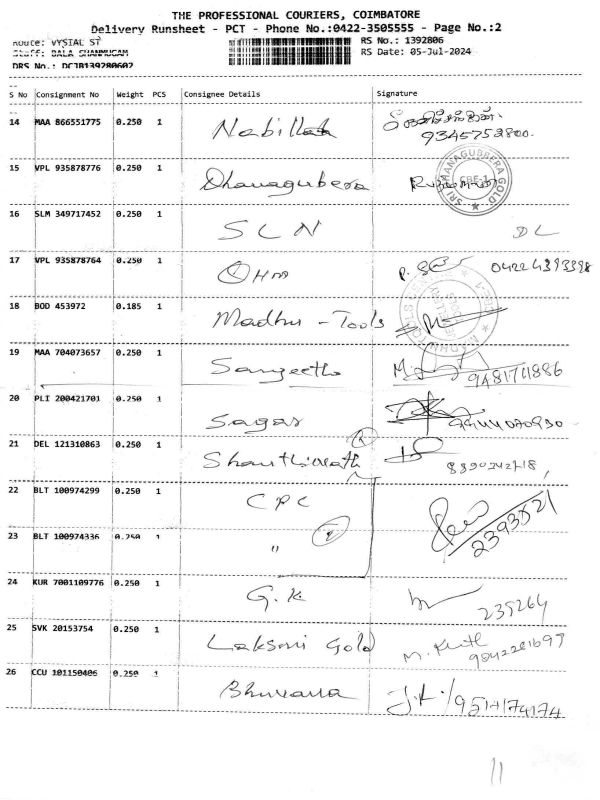 THE PROFESSIONAL COURIERS, COIMBATORE
Delivery Runsheet - PCT - Phone No.:0422-3505555 - Page No.:2
Route: VYSIAL ST RS No.: 1392806
Staff: BALA SHANMUGAM RS Date: 05-Jul-2024
DRS No.: DCJB139280602
S No Consignment No Weight PCS Consignee Details Signature
14 MAA 866551775 0.250 1
9345753800.
15 VPL 935878776 0.250 1 Dhanagubera
SRI MANAGUBBERA GOLD CBE-1
16 SLM 349717452 0.250 1 SLN DL
17 VPL 935878764 0.250 1 OHM 04224393398
18 BOD 453972 0.185 1 Madhu - Tools
19 MAA 704073657 0.250 1 Sangeetha
20 PLI 200421701 0.250 1 Sagar
21 DEL 121310863 0.250 1
22 BLT 100974299 0.250 1 CPC
2393521
23 BLT 100974336 0.250 1 " 2
24 KUR 7001109776 0.250 1 G.K 235264
25 SVK 20153754 0.250 1 Laksmi Gold
26 CCU 101150406 0.250 1 Bhuvana 9514174174
11